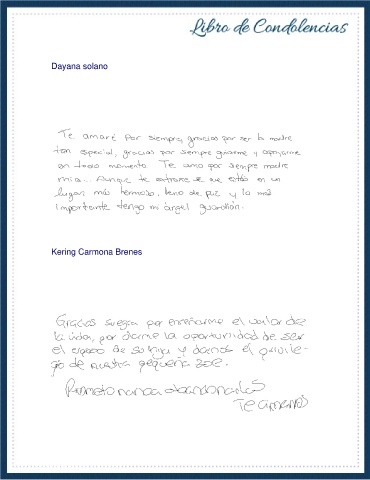 Libro de Condolencias
Dayana solano
Te amaré por siempre, gracias por ser la madre
tan especial, gracias por siempre guiarme y apoyarme
en todo momento. Te amo por siempre madre
mia... Aunque te extrañaré se que estás en un
lugar más hermoso, lleno de paz y lo más
importante tengo mi ángel guardián.
Kering Carmona Brenes
Gracias suegra por enseñarme el valor de
la vida, por darme la oportunidad de ser
el esposo de su hija y darnos el privile-
gio de nuestra pequeña Zoe.
Prometo nunca abandonarlas
Te amamos